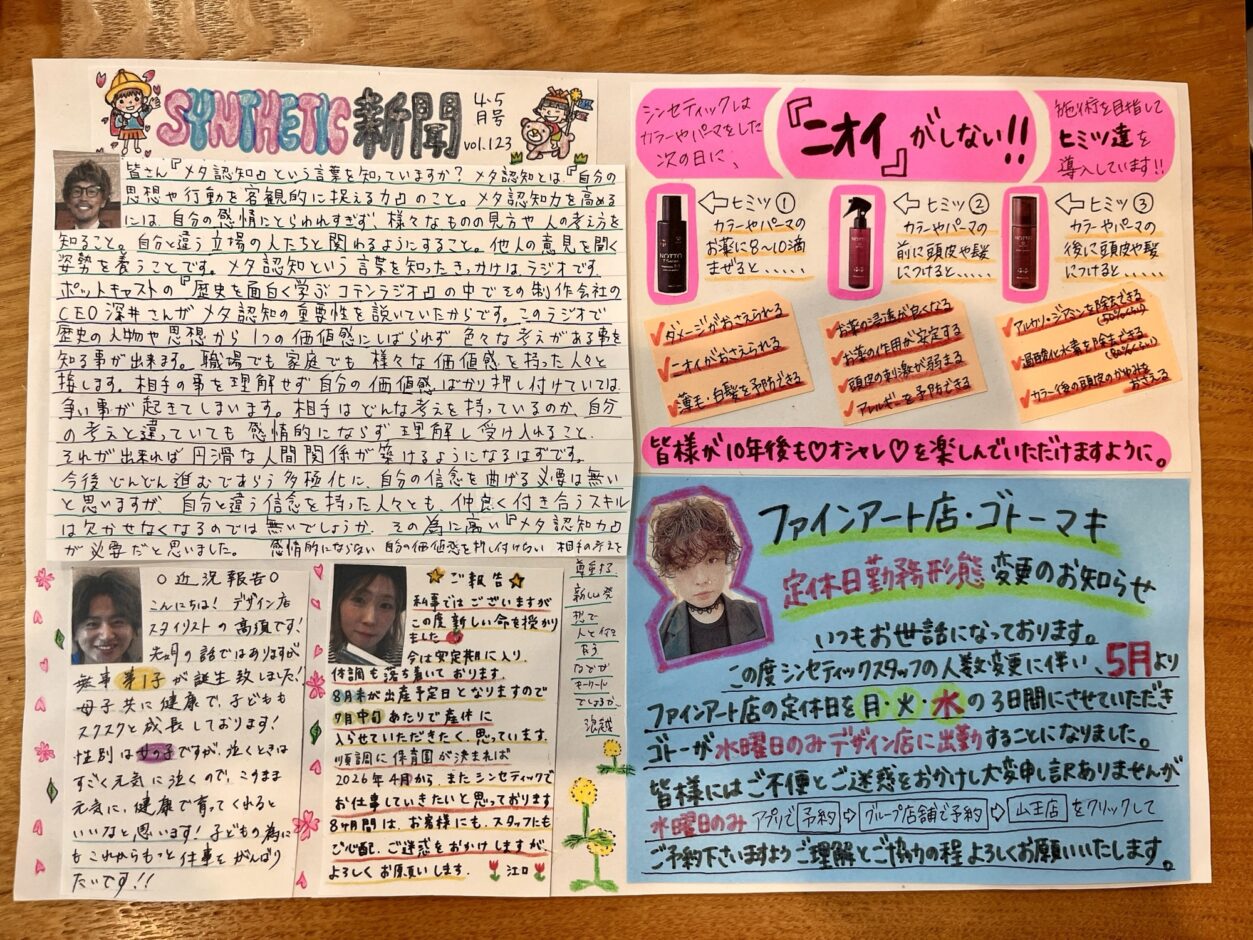 SYNTHETIC新聞
4・5月号
vol.123
皆さん『メタ認知』という言葉を知っていますか？メタ認知とは、『自分の
思想や行動を客観的に捉える力』のこと。メタ認知力を高める
には、自分の感情にとらわれすぎず、様々なものの見方や人の考え方を
知ること。自分と違う立場の人たちと関わるようにすること。他人の意見を聞く
姿勢を養うことです。メタ認知という言葉を知ったきっかけはラジオです。
ポットキャストの『歴史を面白く学ぶコテンラジオ』の中でその制作会社の
CEO深井さんがメタ認知の重要性を説いていたからです。このラジオで
歴史の人物や思想から1つの価値感にしばられず色々な考えがある事を
知る事が出来ます。職場でも家庭でも様々な価値感を持った人々と
接します。相手の事を理解せず自分の価値感ばかり押し付けていては
争い事が起きてしまいます。相手はどんな考えを持っているのか、自分
の考えと違っていても感情的にならず理解し受け入れること、
それが出来れば円滑な人間関係が築けるようになるはずです。
今後どんどん進むであらう多極化に、自分の信念を曲げる必要は無い
と思いますが、自分と違う信念を持った人々とも、仲良く付き合うスキル
は欠かせなくなるのでは無いでしょうか。その為に高い『メタ認知力』
が必要だと思いました。 感情的にならない 自分の価値感を押し付けない 相手の考えを
尊重する
新しい発
想で
人と付
合う
○近況報告○
こんにちは！デザイン店
スタイリストの高須です！
先月の話ではありますが
無事第1子が誕生致しました！
母子共に健康で、子どもも
スクスクと成長しております！
性別は女の子ですが、泣くときは
すごく元気に泣くので、このまま
元気に、健康で育ってくれると
いいなと思います！子どもの為に
もこれからもっと仕事をがんばり
たいです!!
★ご報告★
私事ではございますが
この度新しい命を授かり
ました
今は安定期に入り、
体調も落ち着いております。
8月末が出産予定日となりますので
7月中旬あたりで産休に
入らせていただきたく、思っています。
順調に保育園が決まれば
2026年4月から、またシンセティックで
お仕事していきたいと思っております
8ヶ月間は、お客様にも、スタッフにも
ご心配、ご迷惑をおかけしますが、
よろしくお願いします。 江口
シンセティックは
カラーやパーマをした
次の日に、
『ニオイ』がしない!!
施術を目指して
ヒミツ達を
導入しています!!
⇐ヒミツ①
カラーやパーマの
お薬に8〜10滴
まぜると、、、、、
✓ダメージがおさえられる
✓ニオイがおさえられる
✓薄毛・白髪を予防できる
⇐ヒミツ②
カラーやパーマの
前に頭皮や髪
につけると、、、、、
✓お薬の浸透が良くなる
✓お薬の作用が安定する
✓頭皮の刺激が弱まる
✓アレルギーを予防できる
⇐ヒミツ③
カラーやパーマの
後に頭皮や髪
につけると、、、、、
✓アルカリ・ジアミンを除去できる
✓過酸化水素を除去できる
✓カラー後の頭皮のかゆみを
おさえる
皆様が10年後も♡オシャレ♡を楽しんでいただけますように。
ファインアート店・ゴトーマキ
定休日勤務形態変更のお知らせ
いつもお世話になっております。
この度シンセティックスタッフの人数変更に伴い、5月より
ファインアート店の定休日を月・火・水の3日間にさせていただき
ゴトーが水曜日のみデザイン店に出勤することになりました。
皆様にはご不便とご迷惑をおかけし大変申し訳ありませんが
水曜日のみアプリで予約⇨グループ店舗で予約⇨山王店をクリックして
ご予約下さいますようご理解とご協力の程よろしくお願いいたします。